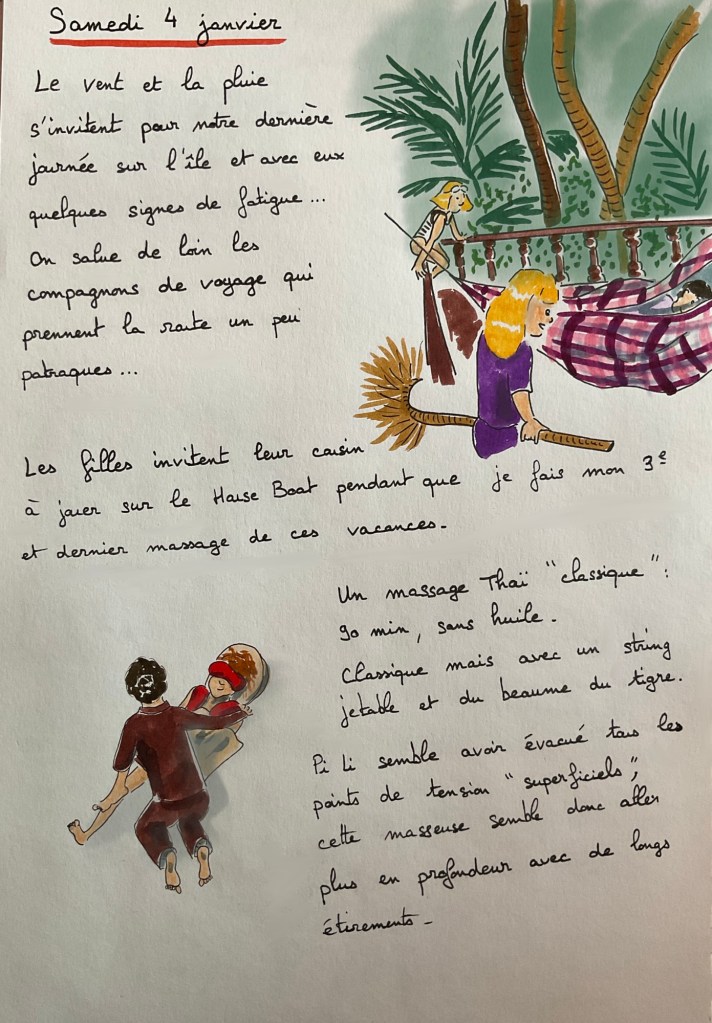 Samedi 4 janvier
Le vent et la pluie
s'invitent pour notre dernière
journée sur l'île et avec eux
quelques signes de fatigue...
On salue de loin les
compagnons de voyage qui
prennent la route un peu
patraques...
Les filles invitent leur cousin
à jouer sur le House Boat pendant que je fais mon 3e
et dernier massage de ces vacances.
Un massage Thaï "classique":
90 min, sans huile.
Classique mais avec un string
jetable et du beaume du tigre.
Pi Li semble avoir évacué tous les
points de tension "superficiels",
cette masseuse semble donc aller
plus en profondeur avec de longs
étirements.